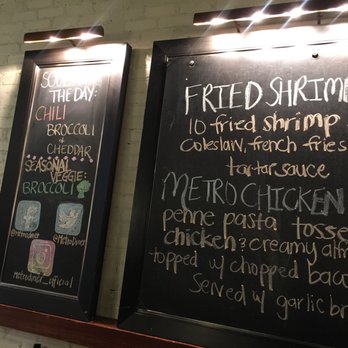 SOUP OF
THE DAY:
CHILI
BROCCOLI
&
CHEDDAR
SEASONAL
VEGGIE:
BROCCOLI
@metrodiner
@MetroDiner
metrodiner_official
FRIED SHRIM
10 fried shrimp
Coleslaw, french fries
tartar sauce
METRO CHICKEN
penne pasta tosse
chicken & creamy alf
topped w/ chopped baco
Served w/ garlic br